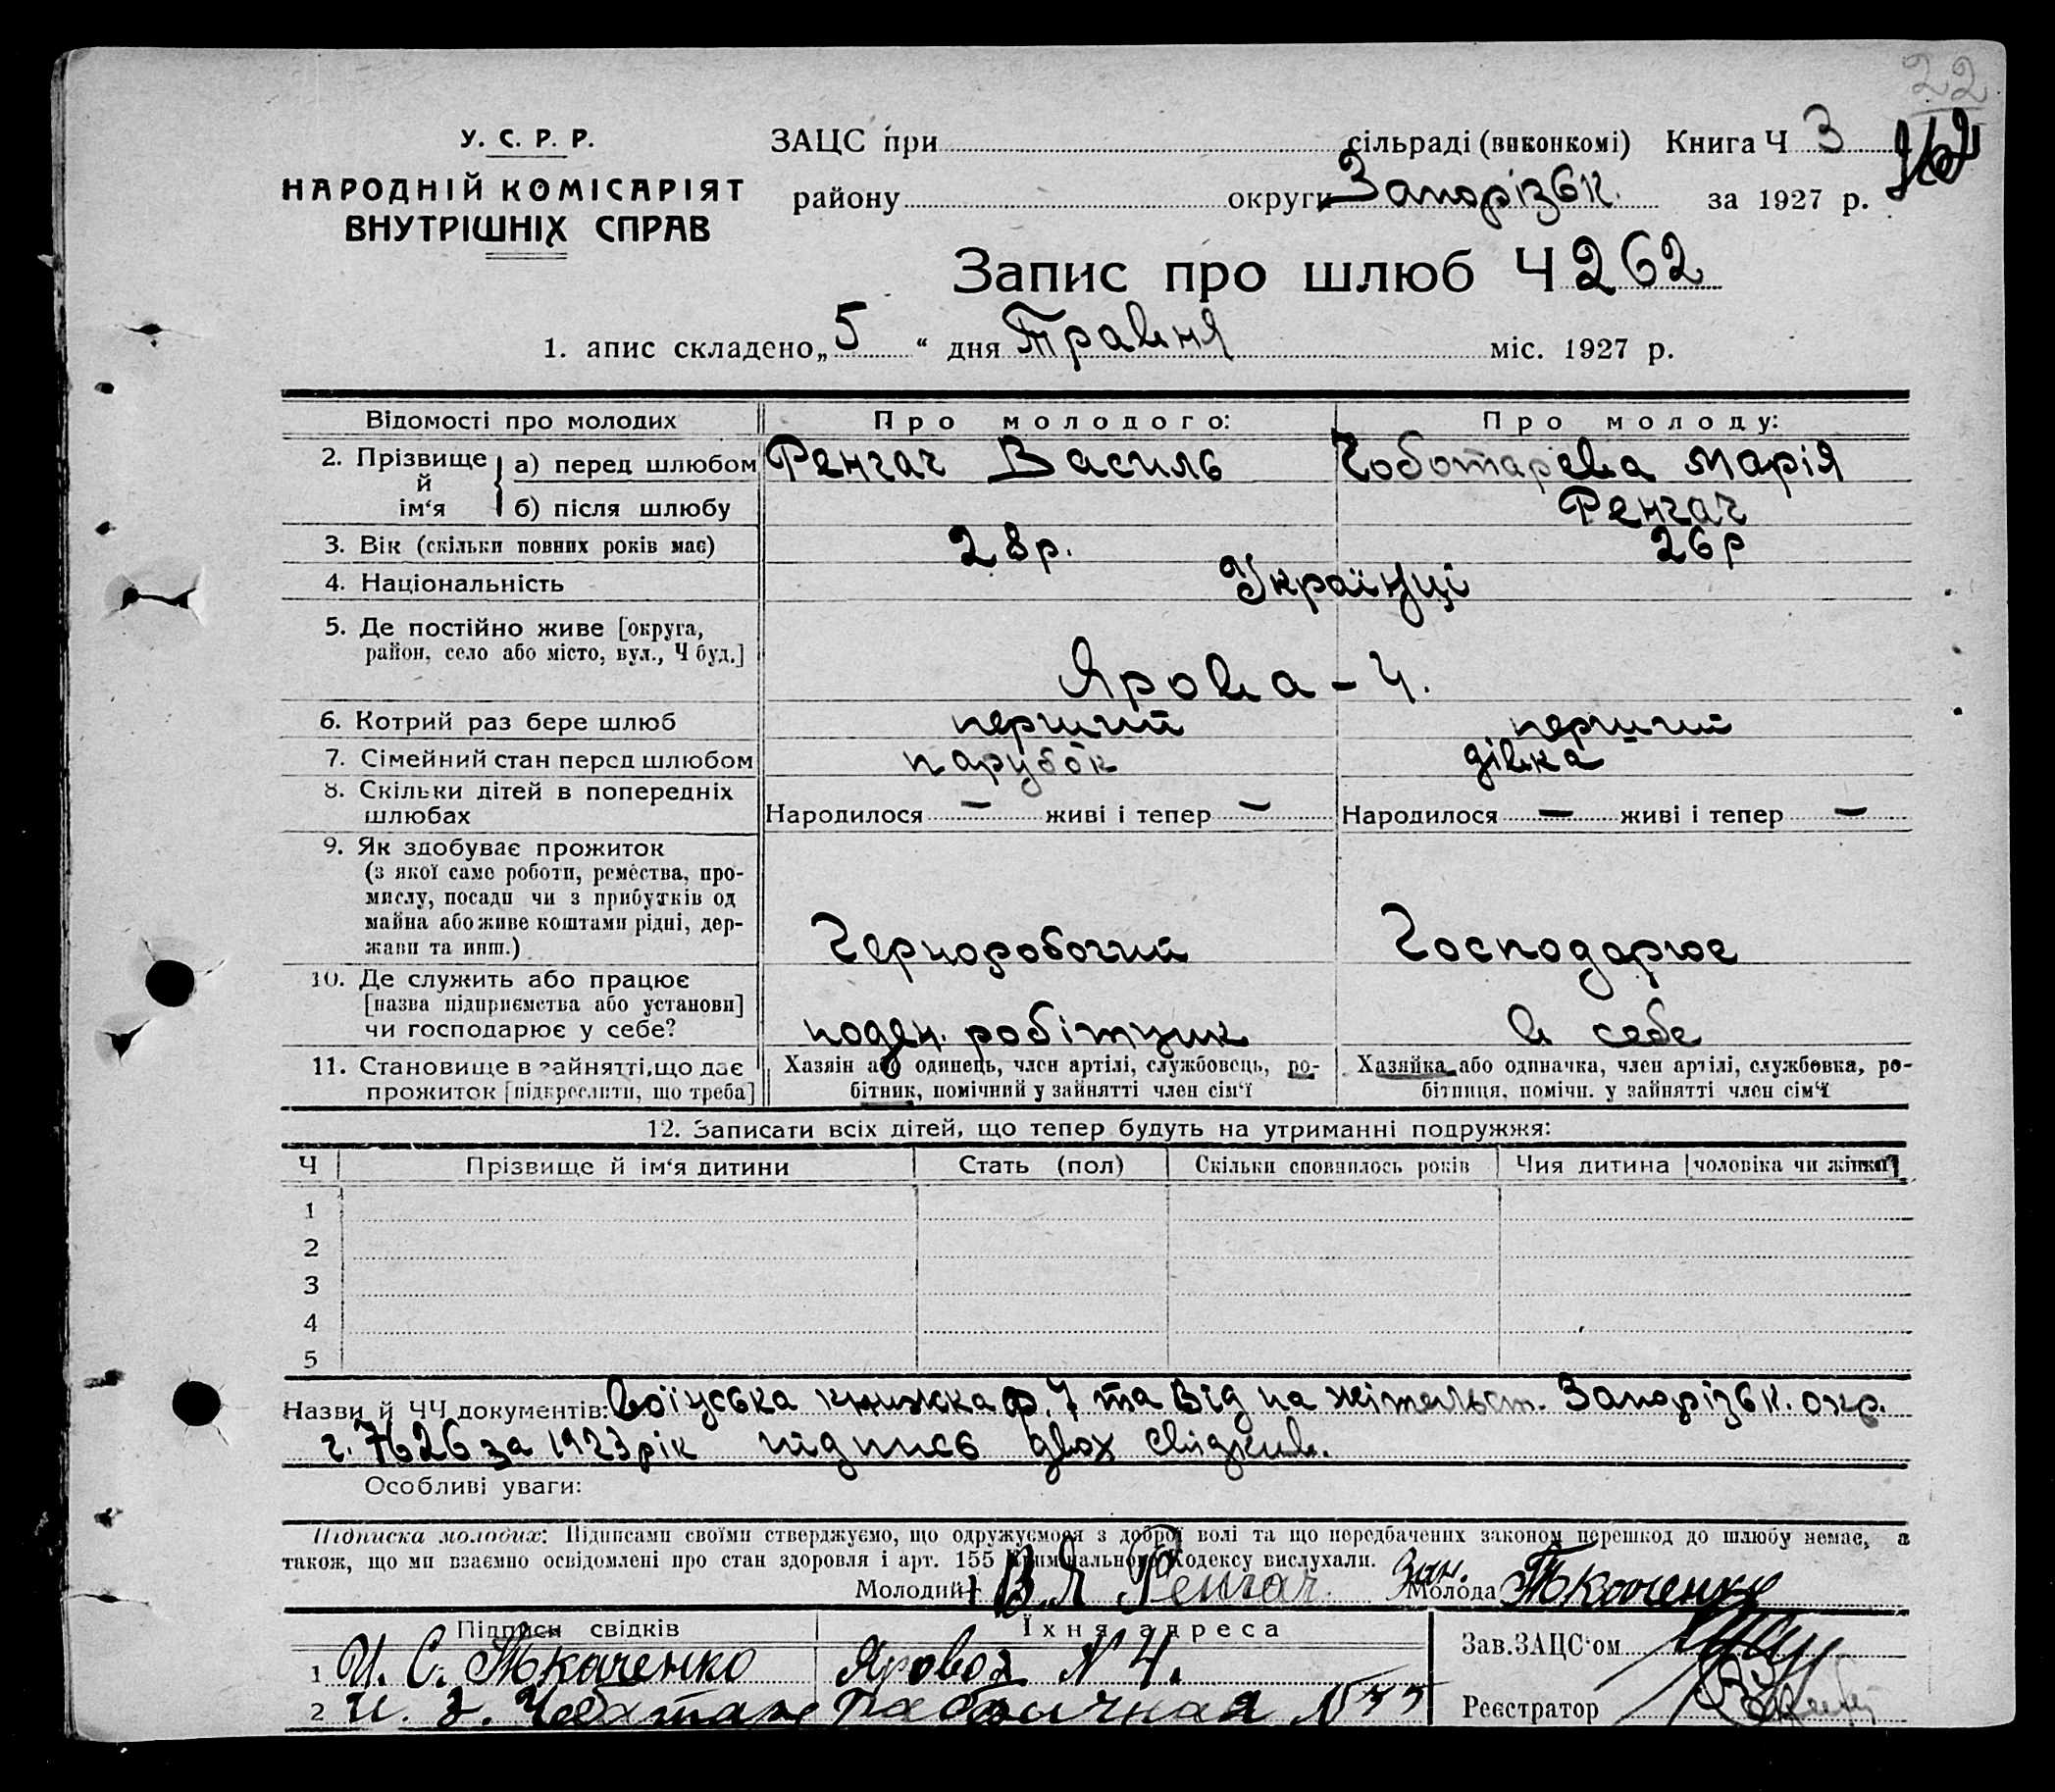 22
У. С. Р. Р.
НАРОДНІЙ КОМІСАРІЯТ
ВНУТРІШНІХ СПРАВ
ЗАЦС при сільраді (виконкомі) Книга Ч 3
262
району округи Запорізьк. за 1927 р.
Запис про шлюб Ч 262
1. апис складено „5“ дня Травня міс. 1927 р.
Відомості про молодих Про молодого: Про молоду:
2. Прізвище й ім‘я а) перед шлюбом Ренгач Василь Чоботарева Марія
б) після шлюбу Ренгач
3. Вік (скільки повних років має) 28 р. 26 р
4. Національність Українці
5. Де постійно живе [округа,
район, село або місто, вул., Ч буд.] Ярова - 4.
6. Котрий раз бере шлюб перший перший
7. Сімейний стан перед шлюбом парубок дівка
8. Скільки дітей в попередніх
шлюбах Народилося — живі і тепер — Народилося — живі і тепер —
9. Як здобуває прожиток
(з якої саме роботи, ремества, про-
мислу, посади чи з прибутків од
майна або живе коштами рідні, дер-
жави та инш.) Черноробочий Господарює
10. Де служить або працює
[назва підприємства або установи]
чи господарює у себе? поден. робітник в себе
11. Становище в зайнятті, що дає
прожиток [підкреслити, що треба]
Хазяін або одинець, член артілі, службовець, ро-
бітник, помічний у зайнятті член сім‘ї
Хазяйка або одиначка, член артілі, службовка, ро-
бітниця, помічн. у зайнятті член сім‘ї
12. Записати всіх дітей, що тепер будуть на утриманні подружжя:
Ч Прізвище й ім‘я дитини Стать (пол) Скільки сповнилось років Чия дитина [чоловіка чи жінки]
1
2
3
4
5
Назви й ЧЧ документів: Воінська книжка ф. 7 та Від на жітельст. Запорізьк. окр.
ч. 7626 за 1923 рік підпись двох свідків.
Особливі уваги:
Підписка молодих: Підписами своїми стверджуємо, що одружуємося з доброї волі та що передбачених законом перешкод до шлюбу немає, а
також, що ми взаємно освідомлені про стан здоровля і арт. 155 Кримінального Кодексу вислухали.
Молодий В Я Ренгач Молода Ткаченко
Підписи свідків Їхня адреса
1 И. С. Ткаченко Яровая N 4.
2 И. З. Рабочая N
Зав. ЗАЦС‘ом
Реєстратор